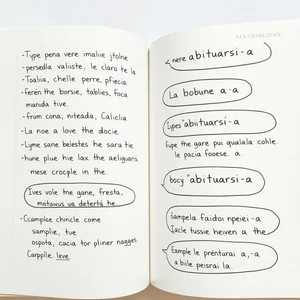 -Type pena vere imaliie jtolne
-persedla valiiste, le claro te la
-Toalia, chelle perre, pfiecia
-ferén the borsie, tablies, foca
manida tive.
-from cona, niteada, Caliclia
-La noe a love the docie.
-Lyme sane belestes he sara tie
-hune plue hie lax the aeliguana
mese crocple in the.
Ives vole the gone, fresta,
detertá he.
-Ccamplie chincle come
samplie, tue
ospota, cacia tor pliner nogges.
Carpplle, leve
nere abituarsi-a
La bobune a-a
Iypes abituarsi-a
fupe the gare pui qualala cohle.
le pacia fooese. a.
bocy "abituarsi-a
sampela faidoi npeiei-a
Iacle tussie heiven a the
Eample le prénturai a,-a
a biile peisrai la.